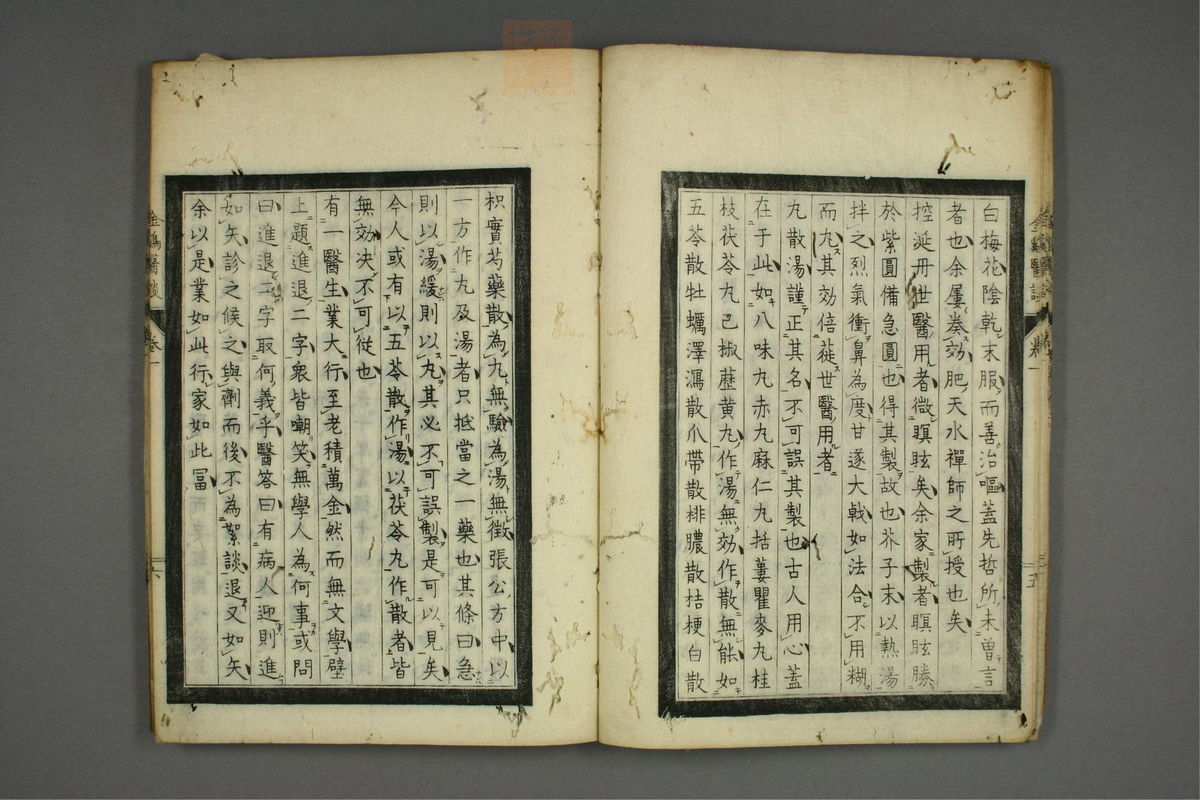 白梅花陰乾末服而善治嘔蓋先哲所未曾言
者也余屢奏効肥天水禪師之所授也矣
控涎丹世醫用者微瞑眩矣余家製者瞑眩勝
於紫圓備急圓也得其製故也芥子末以熱湯
拌之烈氣衝鼻為度甘遂大戟如法合不用糊
而丸其効倍蓰世醫用者
丸散湯謹正其名不可誤其製也古人用心蓋
在于此如八味丸赤丸麻仁丸括蔞瞿麥丸桂
枝茯苓丸己椒藶黄丸作湯無効作散無能如
五苓散牡蠣澤瀉散爪帶散排膿散桔梗白散
枳實芍藥散為丸無驗為湯無徴張公方中以
一方作丸及湯者只抵當之一藥也其條曰急
則以湯緩則以丸其必不可誤製是可以見矣
今人或有以五苓散作湯以茯苓丸作散者皆
無効决不可從也
有一醫生業大行至老積萬金然而無文學壁
上題進退二字衆皆嘲笑無學人為何事或問
曰進退二字取何義乎醫答曰有病人迎則進
如矢診之候之與劑而後不為絮談退又如矢
余以是業如此行家如此冨
金鷄醫談
卷一
五
金鷄醫談
卷一
六